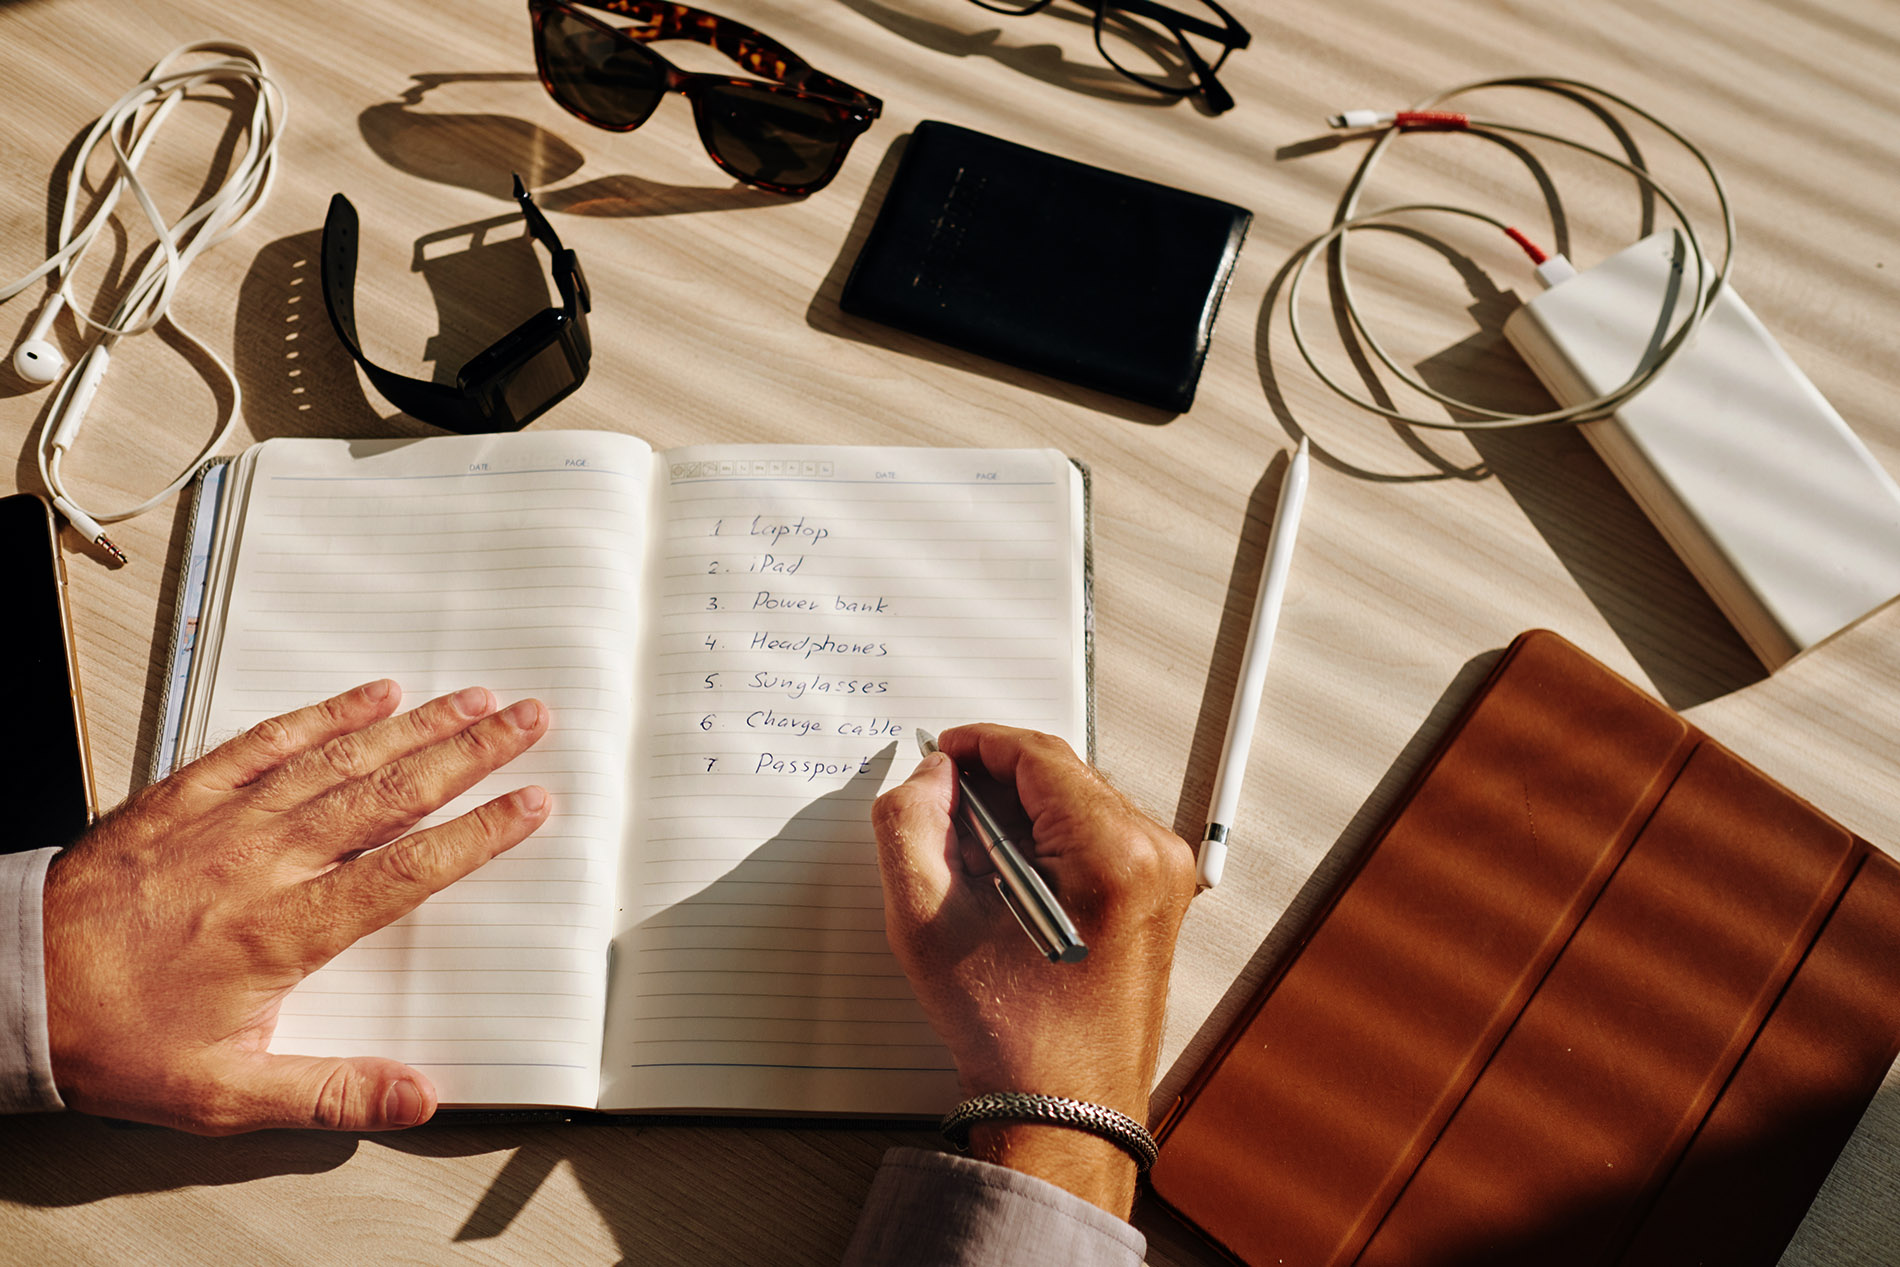 DATE: PAGE:
Mo Tu We Th Fr Sa Su DATE: PAGE:
1 Laptop
2. iPad
3. Power bank.
4. Headphones
5. Sunglasses
6. Charge cable
7. Passport